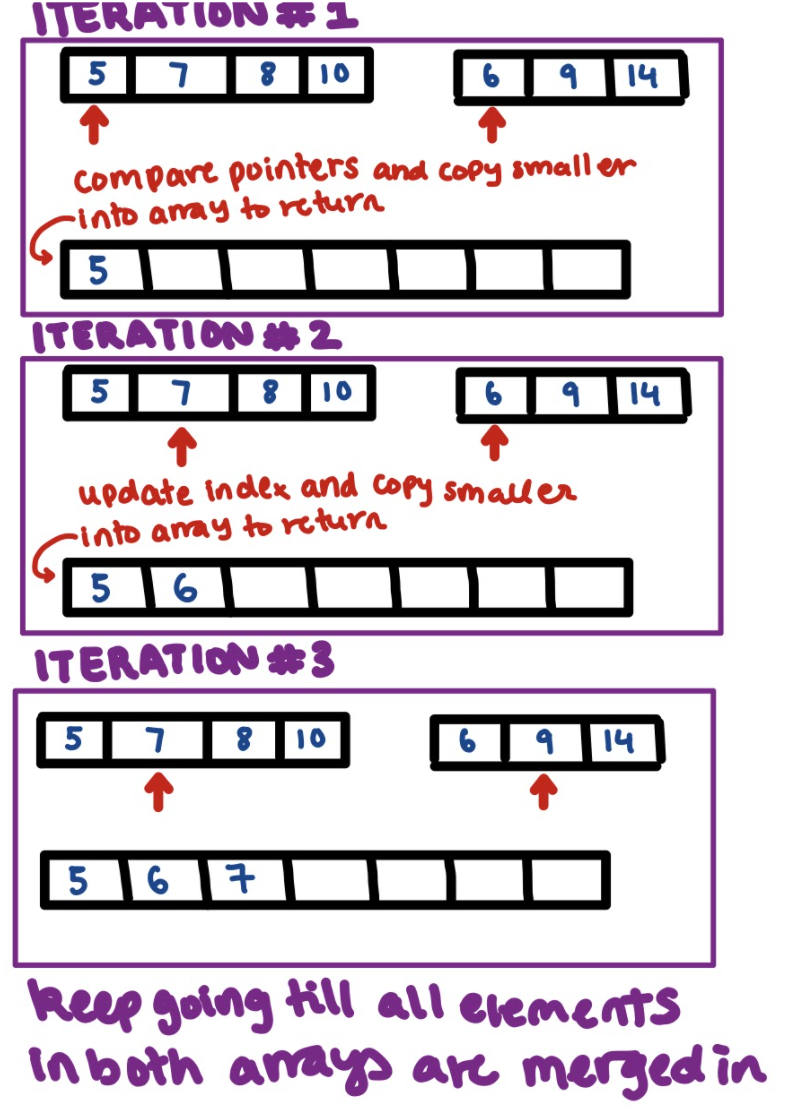 ITERATION # 1
5 7 8 10 6 9 14
compare pointers and copy smaller
into array to return
5
ITERATION # 2
5 7 8 10 6 9 14
update index and copy smaller
into array to return
5 6
ITERATION # 3
5 7 8 10 6 9 14
5 6 7
keep going till all elements
in both arrays are merged in